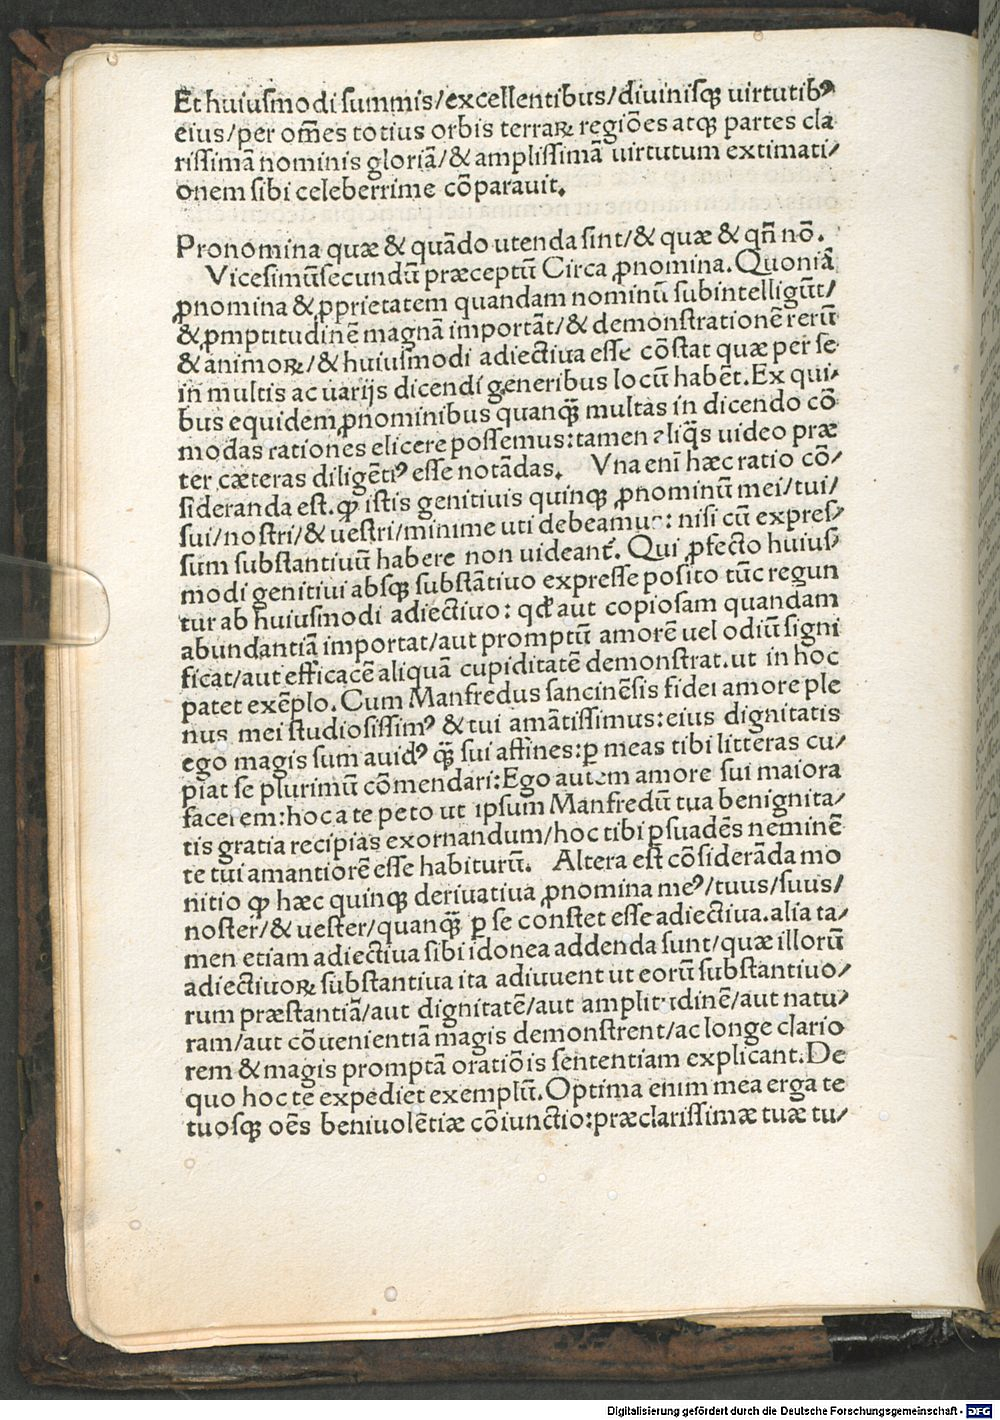 Et huiuſmodi ſummis/excellentibus/diuiniſqꝫ uirtutibꝰ
eius/per om̄es totius orbis terraꝝ regiōes atqꝫ partes cla
riſſimā nominis gloriā/& ampliſſimā uirtutum extimati/
onem ſibi celeberrime cōparauit.
Pronomina quæ & quādo utenda ſint/& quæ & qn̄ nō.
Viceſimūſecundū præceptū Circa ꝓnomina. Quoniā
ꝓnomina & ꝓprietatem quandam nominū ſubintelligūt/
& ꝓmptitudinē magnā importāt/& demonſtrationē rerū
& animoꝝ/& huiuſmodi adiectiua eſſe cōſtat quæ per ſe
in multis ac uarijs dicendi generibus locū habēt. Ex qui/
bus equidem ꝓnominibus quanqꝫ̄ multas in dicendo cō
modas rationes elicere poſſemus: tamen aliq̄s uideo præ
ter cæteras diligētiꝰ eſſe notādas. Vna enī hæc ratio cō/
ſideranda eſt. ꝙ iſtis genitiuis quinqꝫ ꝓnominū mei/tui/
ſui/noſtri/& ueſtri/minime uti debeamus: niſi cū expreſ/
ſum ſubſtantiuū habere non uideant᷑. Qui ꝓfecto huiuſ/
modi genitiui abſqꝫ ſubſtātiuo expreſſe poſito tūc regun
tur ab huiuſmodi adiectiuo: qđ aut copioſam quandam
abundantiā importat/aut promptū amorē uel odiū ſigni
ficat/aut efficacē aliquā cupiditatē demonſtrat. ut in hoc
patet exēplo. Cum Manfredus ſancinēſis fidei amore ple
nus mei ſtudioſiſſimꝰ & tui amātiſſimus: eius dignitatis
ego magis ſum auidꝰ qꝫ̄ ſui affines: ꝑ meas tibi litteras cu/
piat ſe plurimū cōmendari: Ego autem amore ſui maiora
facerem: hoc a te peto ut ipſum Manfredū tua benignita/
tis gratia recipias exornandum/hoc tibi ꝑſuadēs neminē
te tui amantiorē eſſe habiturū. Altera eſt cōſiderāda mo
nitio ꝙ hæc quinqꝫ deriuatiua ꝓnomina meꝰ/tuus/ſuus/
noſter/& ueſter/quanqꝫ̄ ꝑ ſe conſtet eſſe adiectiua. alia ta/
men etiam adiectiua ſibi idonea addenda ſunt/quæ illorū
adiectiuoꝝ ſubſtantiua ita adiuuent ut eorū ſubſtantiuo/
rum præſtantiā/aut dignitatē/aut amplitudinē/aut natu/
ram/aut cōuenientiā magis demonſtrent/ac longe clario
rem & magis promptā oratiōis ſententiam explicant. De
quo hoc te expediet exemplū. Optima enim mea erga te
tuoſqꝫ oēs beniuolētiæ cōiunctio: præclariſſimæ tuæ tu/
Digitalisierung gefördert durch die Deutsche Forschungsgemeinschaft - DFG